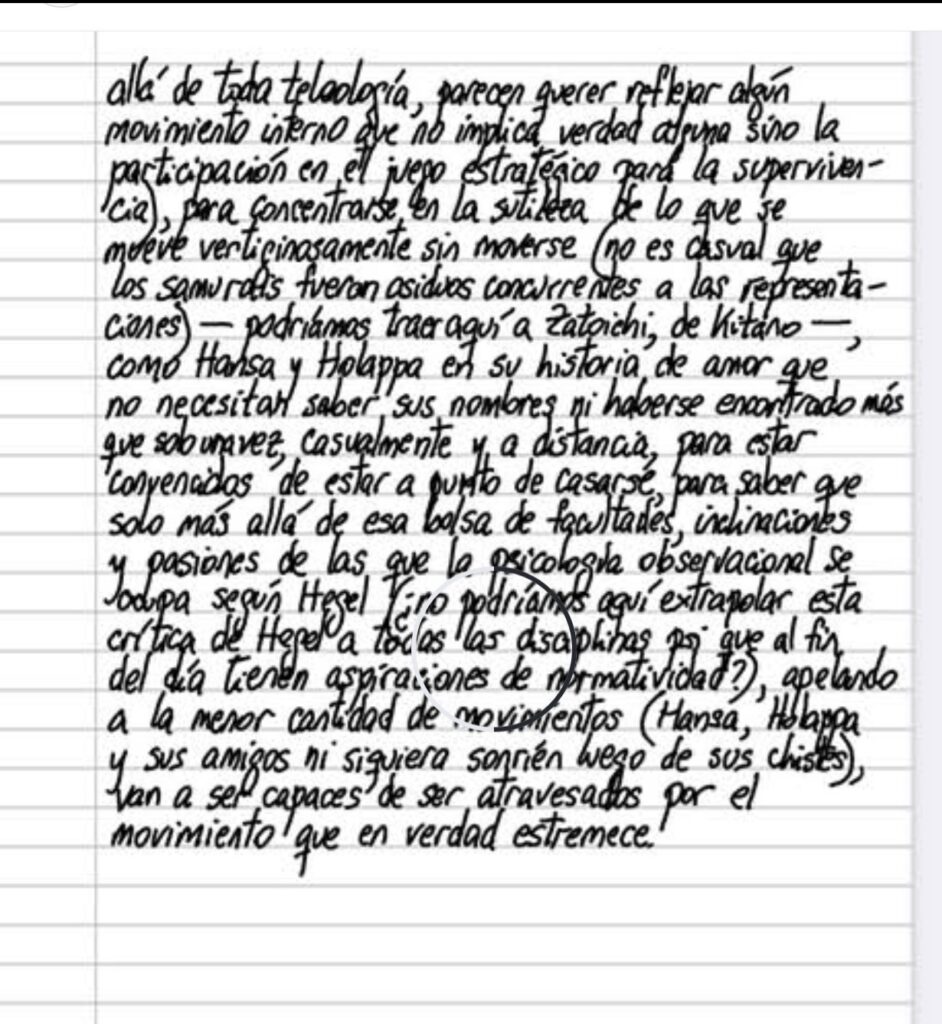 allá de toda teleología, parecen querer reflejar algún
movimiento interno que no implica verdad alguna sino la
participación en el juego estratégico para la superviven-
cia), para concentrarse en la sutileza de lo que se
mueve vertiginosamente sin moverse (no es casual que
los samurais fueron asiduos concurrentes a las representa-
ciones) — podríamos traer aquí a Zatoichi, de Kitano —,
como Hansa y Holappa en su historia de amor que
no necesitan saber sus nombres ni haberse encontrado más
que solo una vez, casualmente y a distancia, para estar
convencidos de estar a punto de casarse, para saber que
solo más allá de esa bolsa de facultades, inclinaciones
y pasiones de las que la psicología observacional se
ocupa según Hegel (¿no podríamos aquí extrapolar esta
crítica de Hegel a todas las disciplinas psi que al fin
del día tienen aspiraciones de normatividad?), apelando
a la menor cantidad de movimientos (Hansa, Holappa
y sus amigos ni siquiera sonríen luego de sus chistes),
van a ser capaces de ser atravesados por el
movimiento que en verdad estremece.